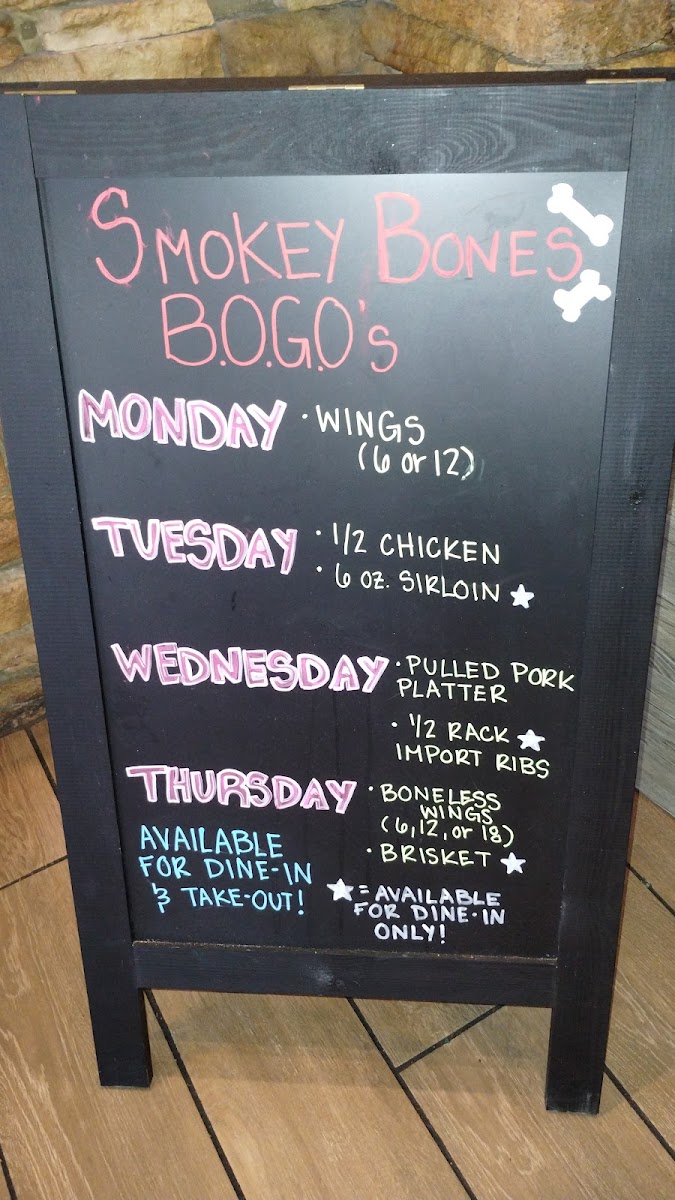 SMOKEY BONES
B.O.G.O's
MONDAY · WINGS
(6 or 12)
TUESDAY · 1/2 CHICKEN
· 6 OZ. SIRLOIN ★
WEDNESDAY · PULLED PORK
PLATTER
· 1/2 RACK ★
IMPORT RIBS
THURSDAY · BONELESS
WINGS
(6, 12, or 18)
· BRISKET ★
AVAILABLE
FOR DINE-IN
& TAKE-OUT!
★ = AVAILABLE
FOR DINE-IN
ONLY!